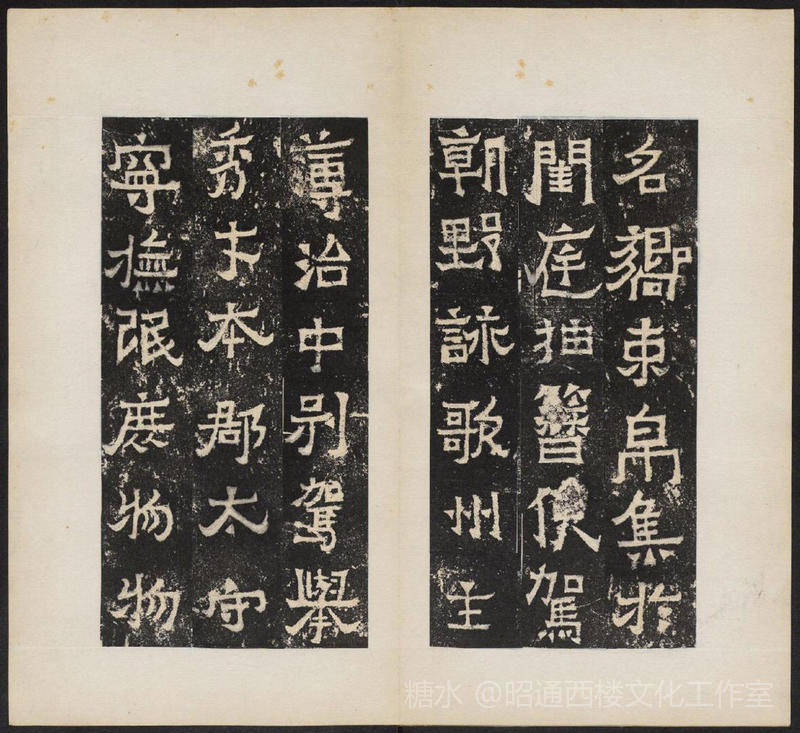 名嚮束帛集於
閨庭抽簪俟駕
朝野詠歌州主
簿治中别駕舉
秀才本郡太守
寧撫氓庶物物
糖水 @昭通西楼文化工作室